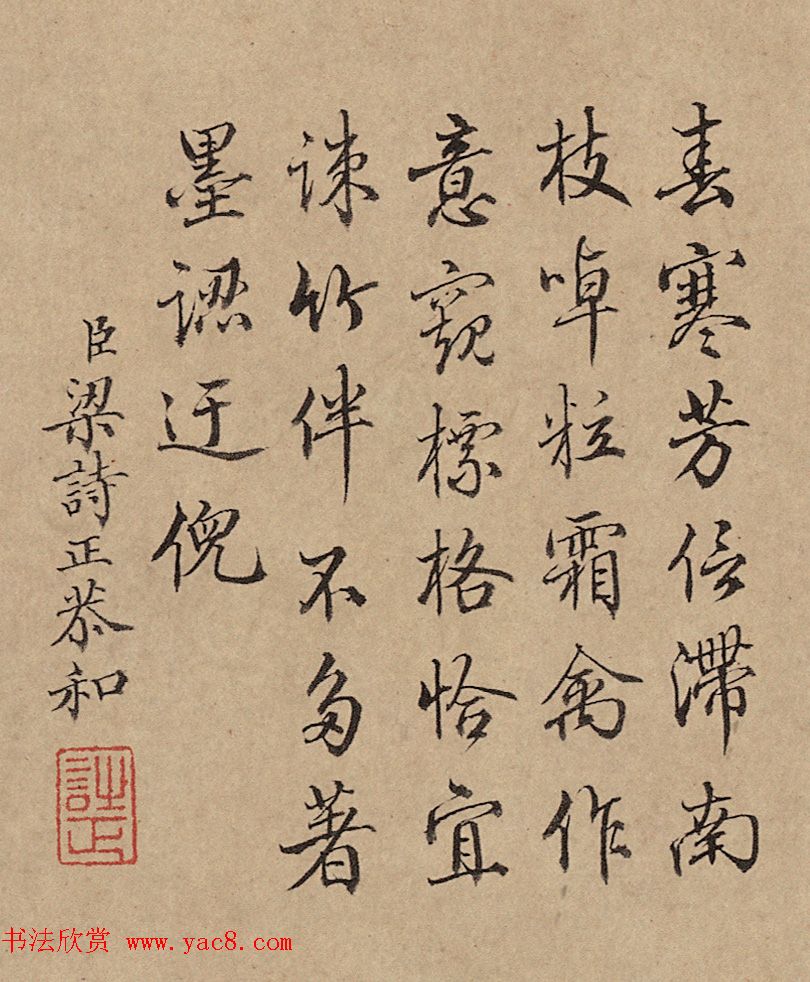 春寒芳信滯南
枝啅粒霜禽作
意窺標格恰宜
踈竹伴不多著
墨認迂倪
臣梁詩正恭和
詩正
书法欣赏 www.yac8.com